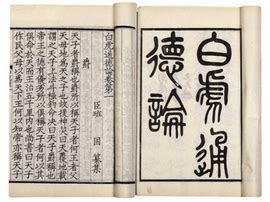 白虎通
德論
白虎通德論卷第一
臣班固纂集
爵
天子者爵稱也爵所以稱天子者何王者父
天母地為天之子也故援神契曰天覆地載
謂之天子上法斗極鉤命決曰天子爵稱也
帝王之德有優劣所以俱稱天子者何以其
俱命於天而王治五千里內也尚書曰天子
作民父母以為天下王何以知帝亦稱天子